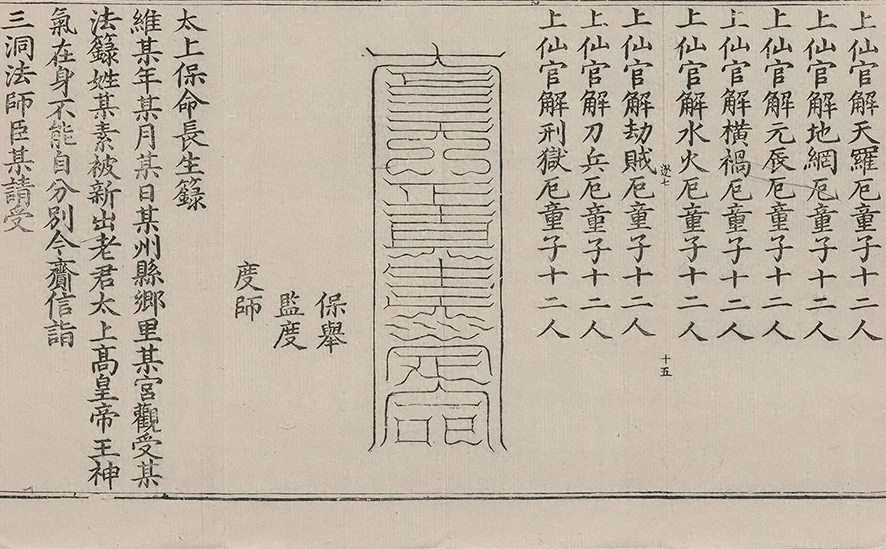 上仙官解天羅厄童子十二人
上仙官解地網厄童子十二人
上仙官解元辰厄童子十二人
上仙官解橫禍厄童子十二人
上仙官解水火厄童子十二人
遂七
十五
上仙官解劫賊厄童子十二人
上仙官解刀兵厄童子十二人
上仙官解刑獄厄童子十二人
保舉
監度
度師
太上保命長生籙
維某年某月某日某州縣鄉里某宮觀受某
法籙姓某素被新出老君太上高皇帝王神
氣在身不能自分別今齎信詣
三洞法師臣某請受